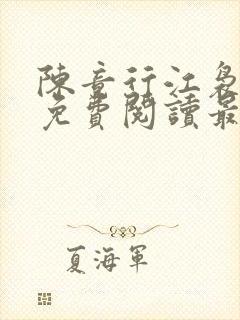 陳音行江梟
免費閱讀最
夏海軍